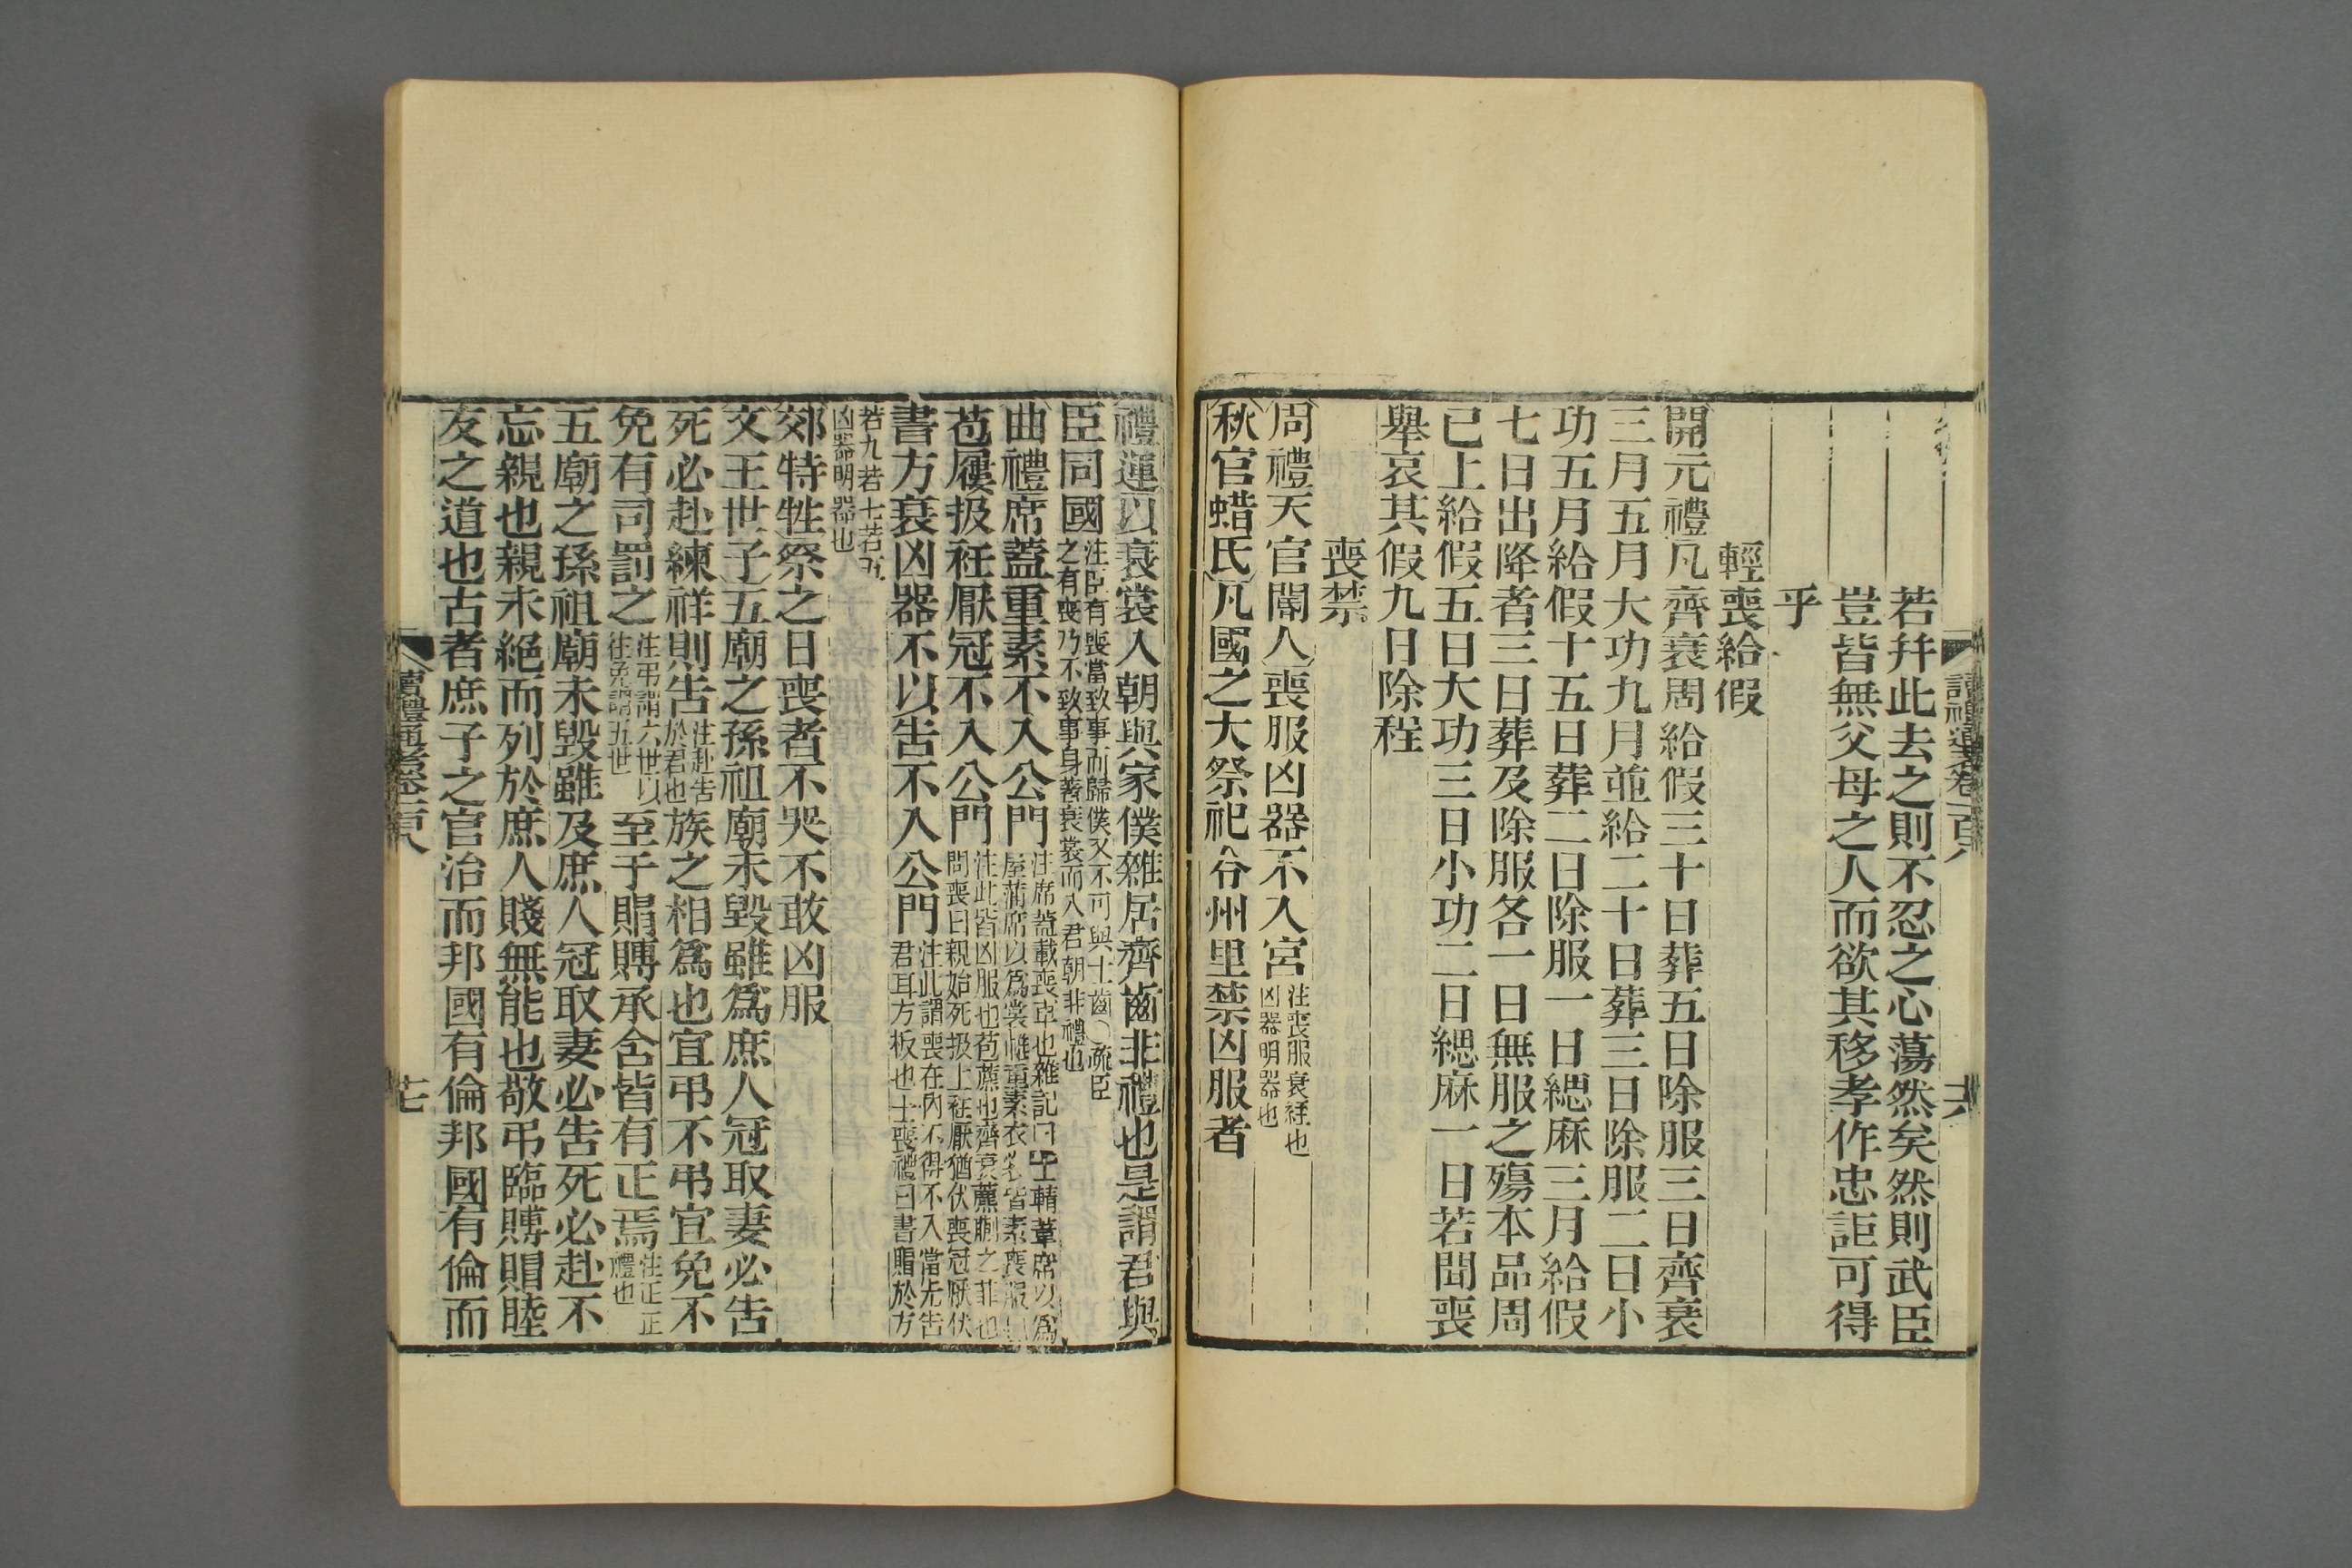 讀禮通考卷一百八
六
若幷此去之則不忍之心蕩然矣然則武臣
豈皆無父母之人而欲其移孝作忠詎可得
乎
輕喪給假
開元禮凡齊衰周給假三十日葬五日除服三日齊衰
三月五月大功九月並給二十日葬三日除服二日小
功五月給假十五日葬二日除服一日緦麻三月給假
七日出降者三日葬及除服各一日無服之殤本品周
已上給假五日大功三日小功二日緦麻一日若聞喪
舉哀其假九日除程
喪禁
周禮天官閽人喪服凶器不入宮注喪服衰絰也凶器明器也
秋官蜡氏凡國之大祭祀令州里禁凶服者
禮運以衰裳入朝與家僕雜居齊齒非禮也是謂君與
臣同國注臣有喪當致事而歸僕又不可與士齒疏臣之有喪乃不致事身著衰裳而入君朝非禮也
曲禮席蓋重素不入公門注席蓋載喪車也雜記曰士輤葦席以爲屋蒲席以爲裳帷重素衣裳皆素喪服也
苞屨扱衽厭冠不入公門注此皆凶服也苞藨也齊衰藨蒯之菲也問喪曰親始死扱上衽厭猶伏喪冠厭伏
書方衰凶器不以告不入公門注此謂喪在內不得不入當先告君耳方板也士喪禮曰書賵於方
若九若七若五凶器明器也
郊特牲祭之日喪者不哭不敢凶服
文王世子五廟之孫祖廟未毀雖爲庶人冠取妻必告
死必赴練祥則告注赴告於君也族之相爲也宜弔不弔宜免不
免有司罰之注弔謂六世以往免謂五世至于賵賻承含皆有正焉注正正禮也
五廟之孫祖廟未毀雖及庶人冠取妻必告死必赴不
忘親也親未絕而列於庶人賤無能也敬弔臨賻賵睦
友之道也古者庶子之官治而邦國有倫邦國有倫而
讀禮通考卷一百八
七